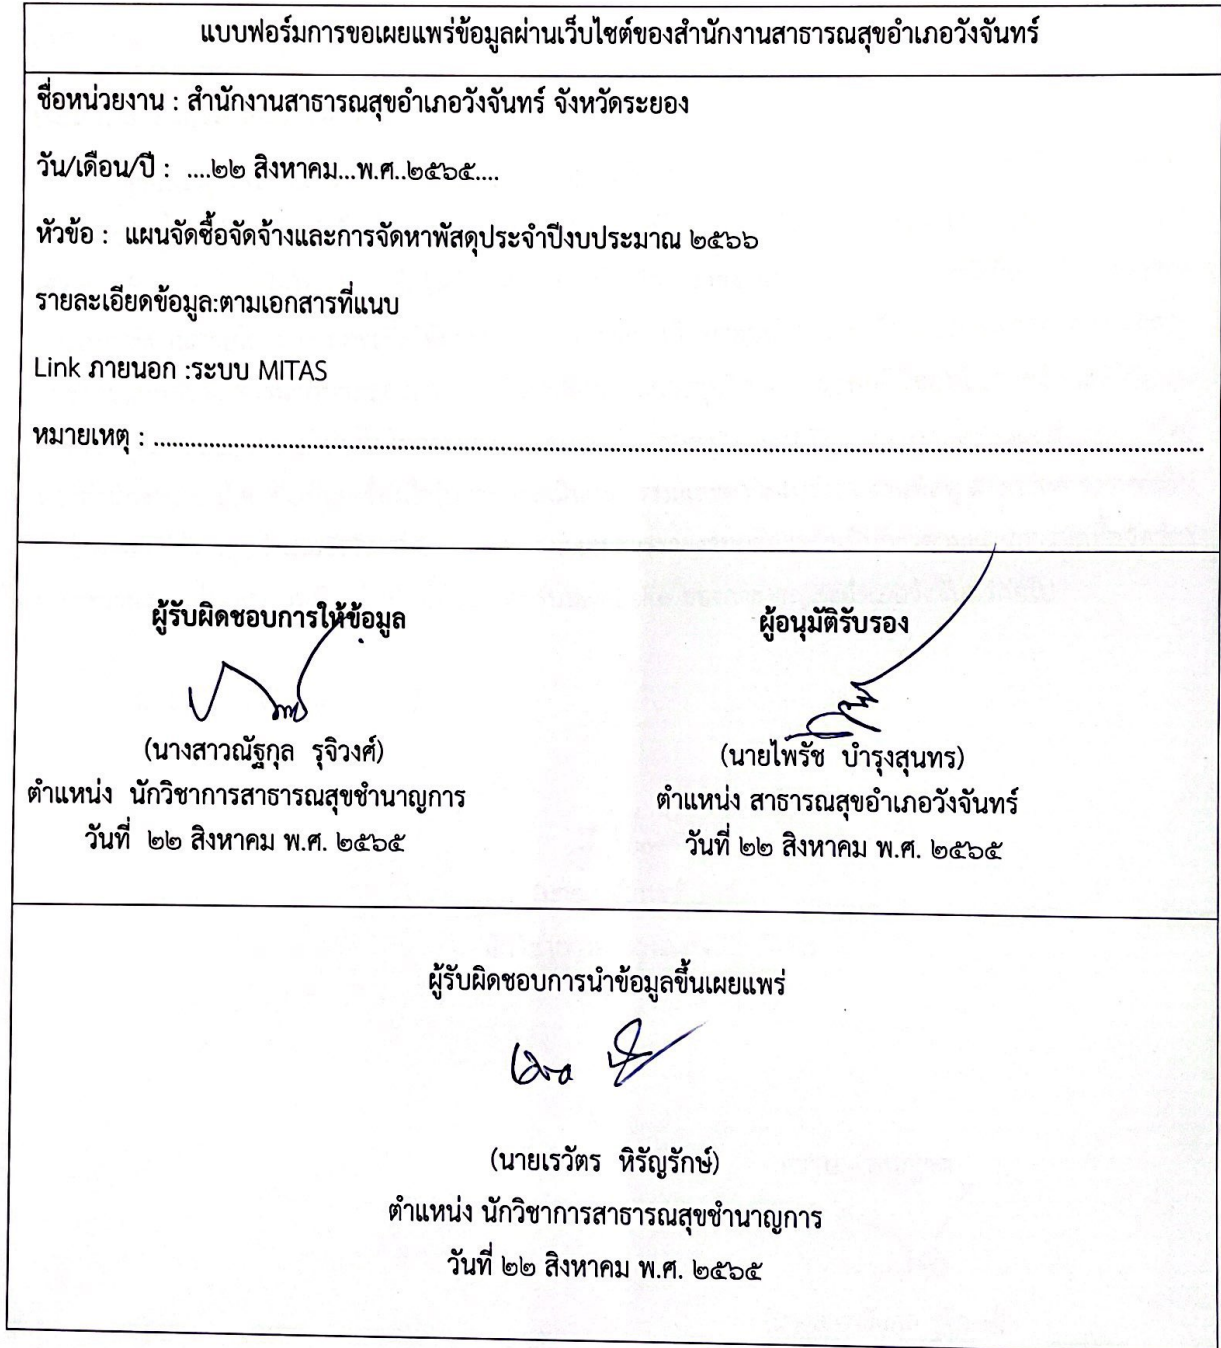 แบบฟอร์มการขอเผยแพร่ข้อมูลผ่านเว็บไซต์ของสำนักงานสาธารณสุขอำเภอวังจันทร์
ชื่อหน่วยงาน : สำนักงานสาธารณสุขอำเภอวังจันทร์ จังหวัดระยอง
วัน/เดือน/ปี : ....๒๒ สิงหาคม...พ.ศ..๒๕๖๕....
หัวข้อ : แผนจัดซื้อจัดจ้างและการจัดหาพัสดุประจำปีงบประมาณ ๒๕๖๖
รายละเอียดข้อมูล:ตามเอกสารที่แนบ
Link ภายนอก :ระบบ MITAS
หมายเหตุ : ........................................................................................................................
ผู้รับผิดชอบการให้ข้อมูล
(นางสาวณัฐกุล รุจิวงศ์)
ตำแหน่ง นักวิชาการสาธารณสุขชำนาญการ
วันที่ ๒๒ สิงหาคม พ.ศ. ๒๕๖๕
ผู้อนุมัติรับรอง
(นายไพรัช บำรุงสุนทร)
ตำแหน่ง สาธารณสุขอำเภอวังจันทร์
วันที่ ๒๒ สิงหาคม พ.ศ. ๒๕๖๕
ผู้รับผิดชอบการนำข้อมูลขึ้นเผยแพร่
(นายเรวัตร หิรัญรักษ์)
ตำแหน่ง นักวิชาการสาธารณสุขชำนาญการ
วันที่ ๒๒ สิงหาคม พ.ศ. ๒๕๖๕